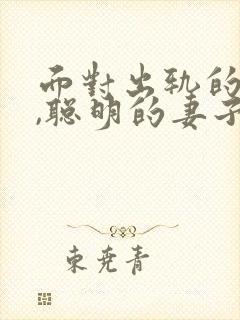 面對出軌的
,聰明的妻子
東堯青